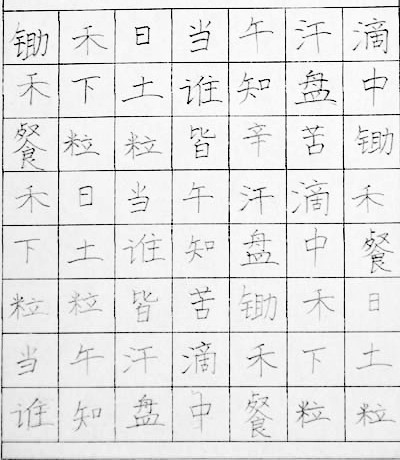 锄禾日当午汗滴
禾下土谁知盘中
餐粒粒皆辛苦锄
禾日当午汗滴禾
下土谁知盘中餐
粒粒皆苦锄禾日
当午汗滴禾下土
谁知盘中餐粒粒